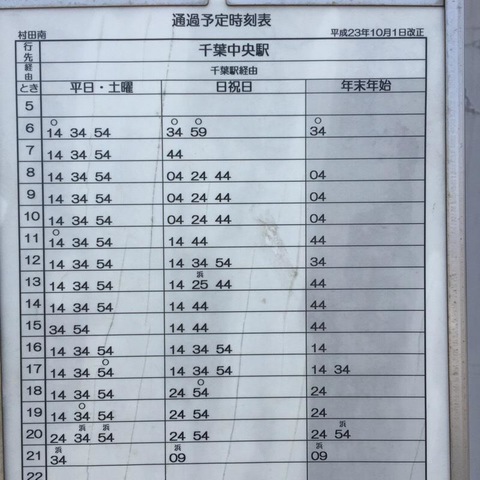 通過予定時刻表
村田南 平成23年10月1日改正
行先 千葉中央駅
経由 千葉駅経由
とき 平日・土曜 日祝日 年末年始
5
○ ○ ○ ○
6 14 34 54 34 59 34
7 14 34 54 44
8 14 34 54 04 24 44 04
9 14 34 54 04 24 44 04
10 14 34 54 04 24 44 04
○
11 14 34 54 14 44 44
12 14 34 54 14 34 54 34
浜
13 14 34 54 14 25 44 44
14 14 34 54 14 44 44
15 34 54 14 44 44
16 14 34 54 14 34 54 14
○
17 14 34 54 14 34 54 14 34
○
18 14 34 54 24 54 24
○
19 14 34 54 24 54 24
浜 浜 浜
20 24 34 54 24 54 24 54
浜 浜 浜
21 34 09 09
22